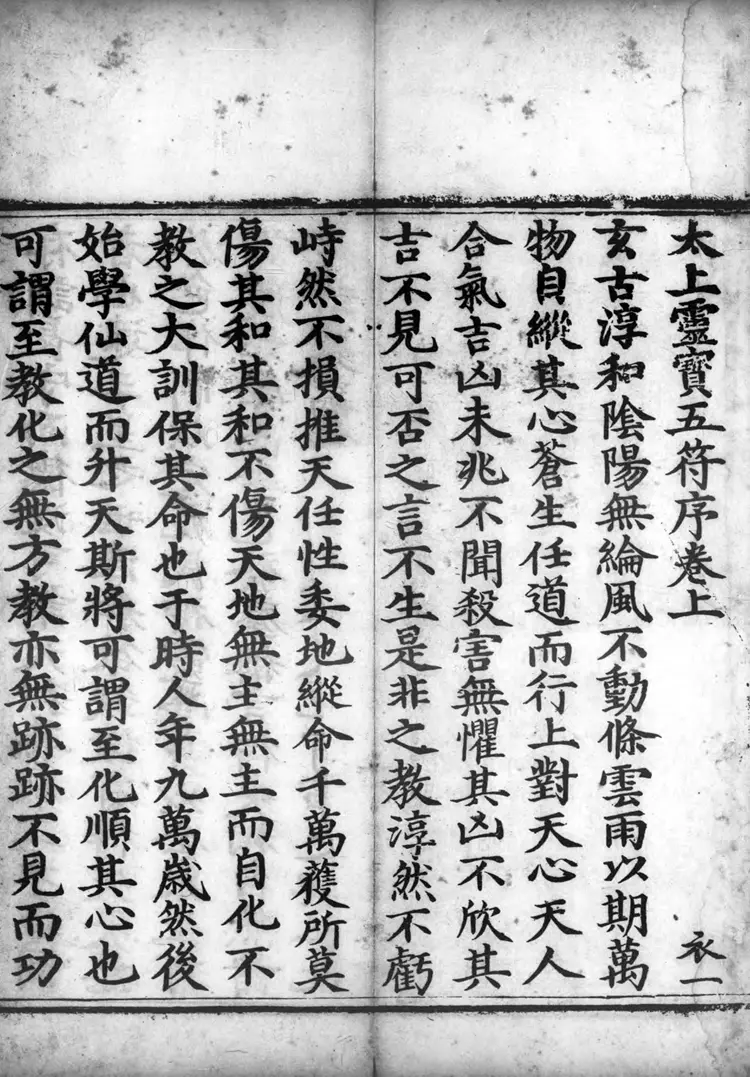 太上靈寶五符序卷上
衣一
玄古淳和陰陽無綸風不動條雲雨以期萬
物自縱其心蒼生任道而行上對天心天人
合氣吉凶未兆不聞殺害無懼其凶不欣其
吉不見可否之言不生是非之教淳然不虧
峙然不損推天任性委地縱命千萬蒦所莫
傷其和其和不傷天地無主無主而自化不
教之大訓保其命也于時人年九萬歲然後
始學仙道而升天斯將可謂至化順其心也
可謂至教化之無方教亦無跡跡不見而功